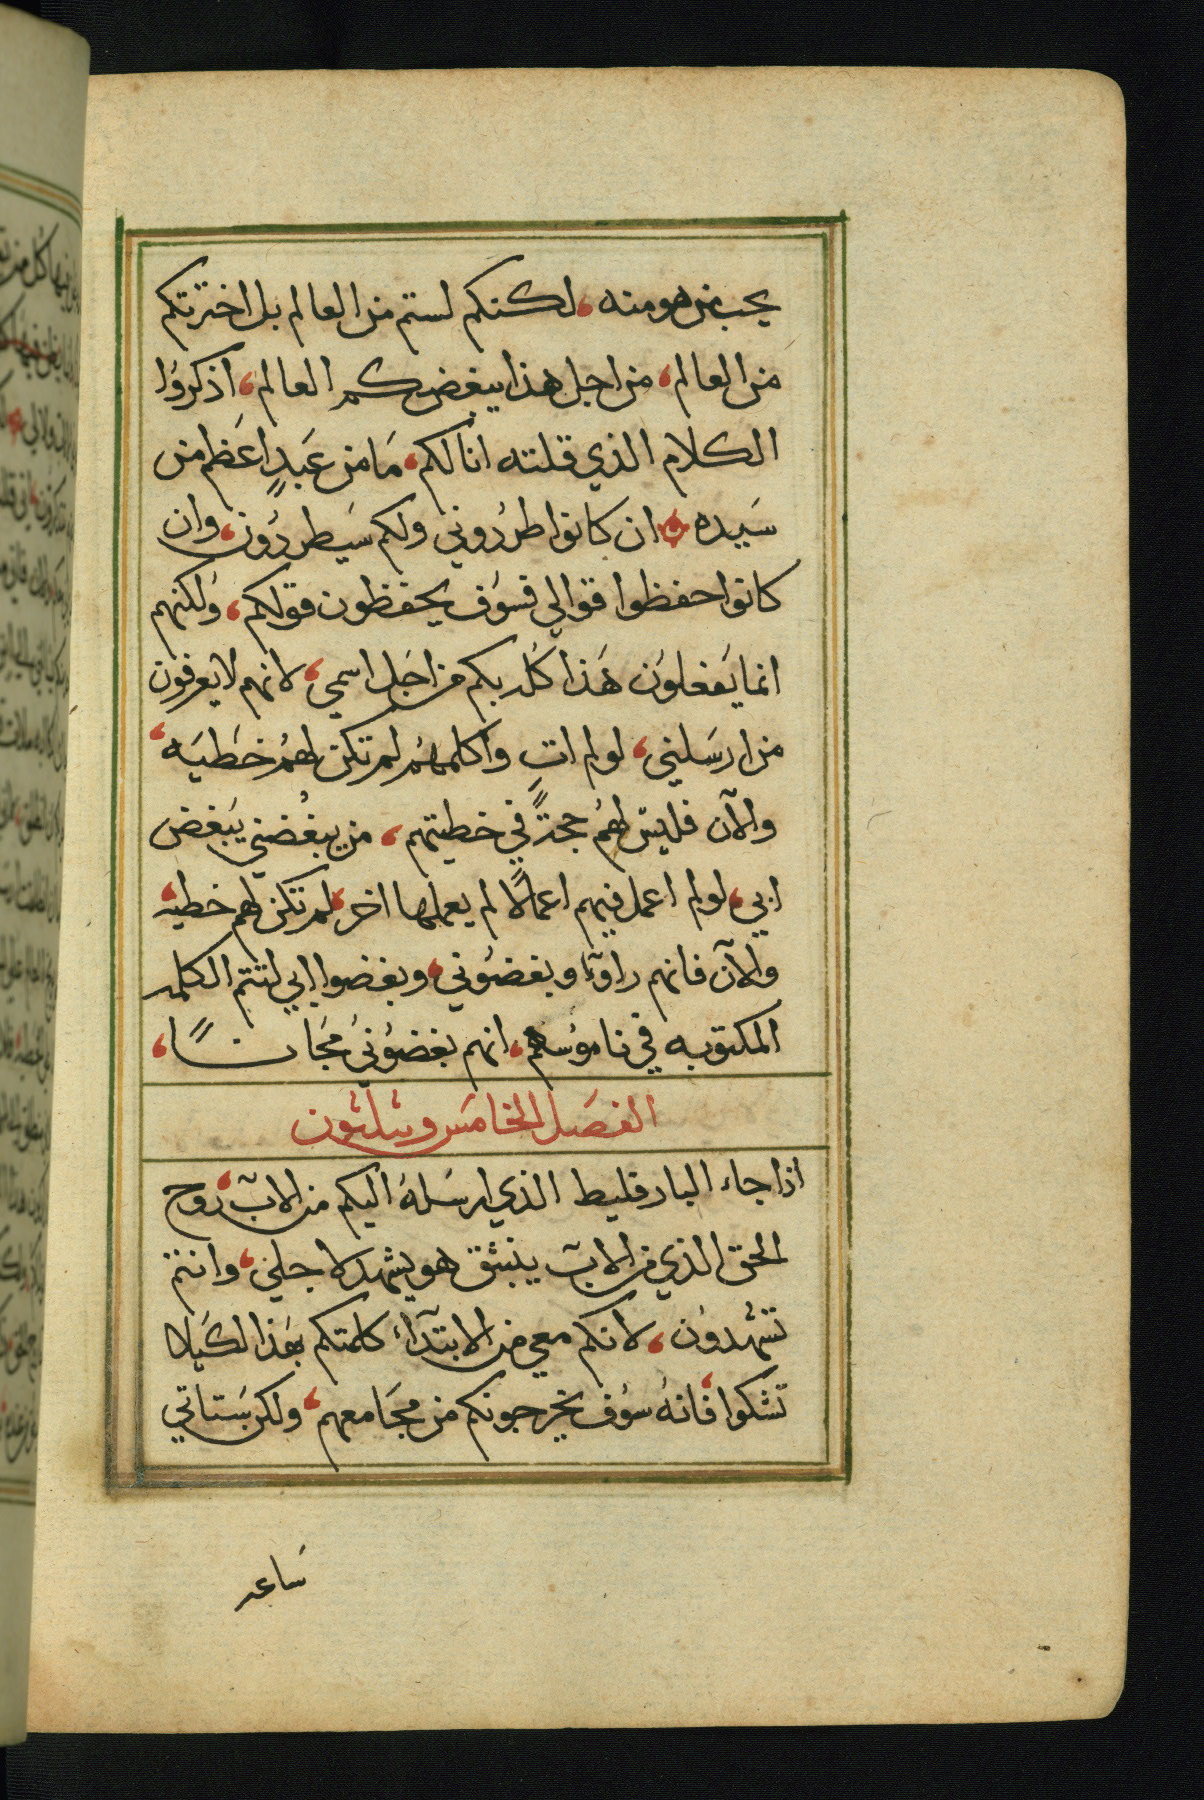 يحب من هو منه، لكنكم لستم من العالم بل اخترتكم
من العالم، من اجل هذا يبغضكم العالم، اذكروا
الكلام الذي قلته انا لكم، مَا من عَبدٍ اعَظم من
سَيده ان كانوا طردُوني ولكم سَيطردُون، وان
كانوا حفظوا قوالي فسوف يحفظون قولكم، ولكنهم
انما يَفعلوَن هَذا كله بكم من اجَل اسمي، لانهم لا يعرفون
من ارسَلني، لو لم اتِ واكلمهُم لم تكن لهُم خطَيَه،
والآن فليس لهمُ حجةً في خطيتهم، من يبغُضني يَبغض
ابي، لو لم اعمل فيهم اعمالًا لم يعملها اخر، لم تكن لهم خطيه،
والآن فانهم راوَا وبغضُوني، وبغضوا ابي لتتم الكلمه
المكتوبه في نامُوسهم، انهم بغضوُني مجَانًا،
الفصَل الخامسَ وثلثون
اذا جاء البارقليط الذي ارسَلهُ اليكم من الاب، روح
الحق الذي من الاب ينبثق هو يشهد لاجلي، وانتم
تشهدوُن، لانكم معي من الابتدآء كلمتكم بهَذا لكيَلا
تشكوا، فانهُ سوُف يخرجونكم من مجَامعهم، ولكن سَتاتي
سَاعه